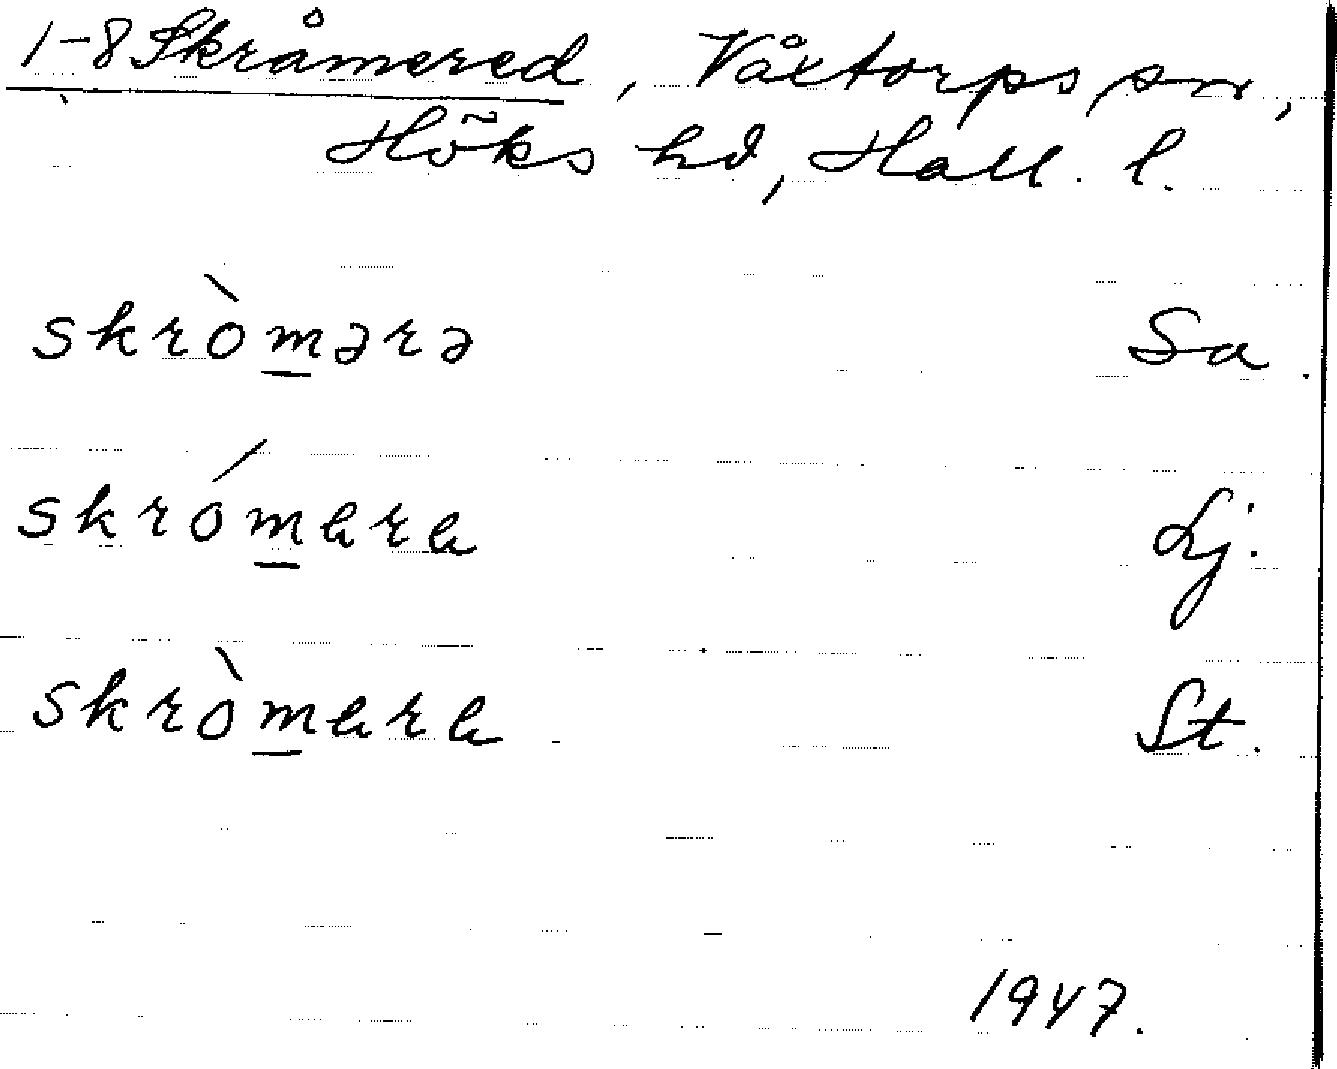 1-8 Skråmered, Våxtorps sn,
Höks hd, Hall. l.
skròm̲ərə Sa.
skróm̲ara Lj.
skròm̲ara St.
1947.